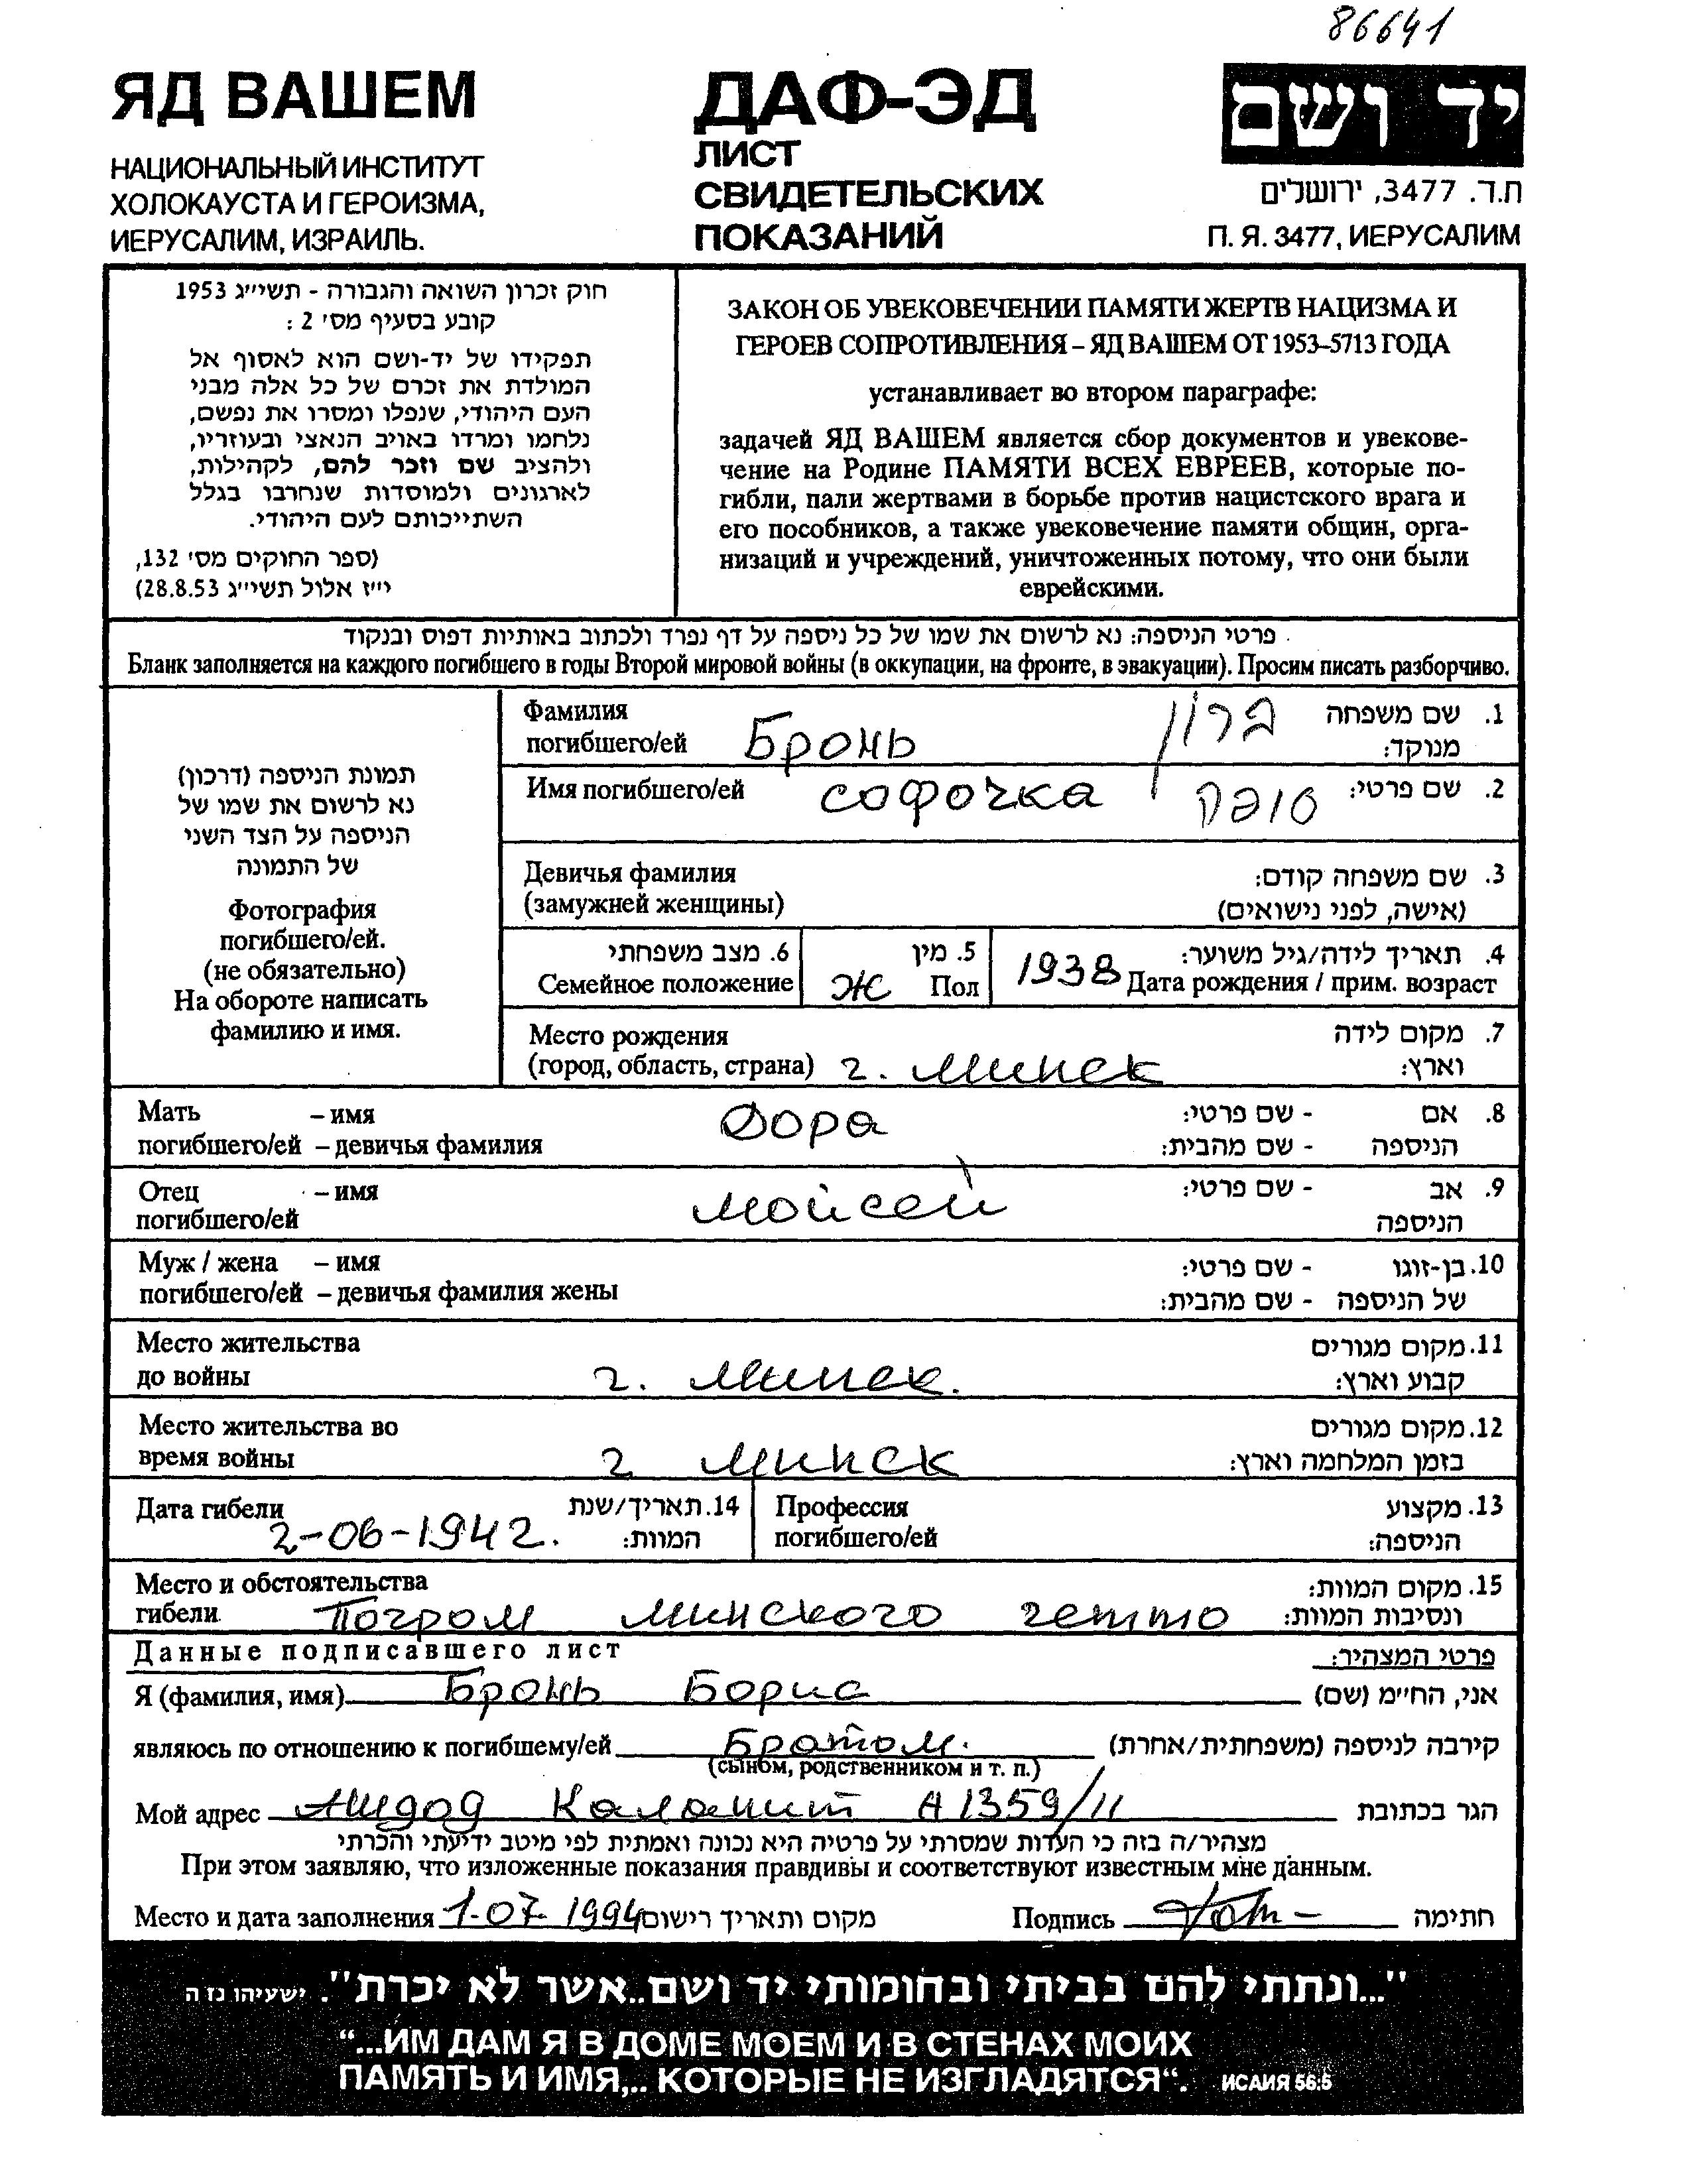 86641
ЯД ВАШЕМ
НАЦИОНАЛЬНЫЙ ИНСТИТУТ
ХОЛОКАУСТА И ГЕРОИЗМА,
ИЕРУСАЛИМ, ИЗРАИЛЬ.
ДАФ-ЭД
ЛИСТ
СВИДЕТЕЛЬСКИХ
ПОКАЗАНИЙ
יד ושם
ת.ד. 3477, ירושלים
П. Я. 3477, ИЕРУСАЛИМ
חוק זכרון השואה והגבורה - תשי״ג 1953
קובע בסעיף מס׳ 2 :
תפקידו של יד-ושם הוא לאסוף אל
המולדת את זכרם של כל אלה מבני
העם היהודי, שנפלו ומסרו את נפשם,
נלחמו ומרדו באויב הנאצי ובעוזריו,
ולהציב שם וזכר להם, לקהילות,
לארגונים ולמוסדות שנחרבו בגלל
השתייכותם לעם היהודי.
(ספר החוקים מס׳ 132,
י״ז אלול תשי״ג 28.8.53)
ЗАКОН ОБ УВЕКОВЕЧЕНИИ ПАМЯТИ ЖЕРТВ НАЦИЗМА И
ГЕРОЕВ СОПРОТИВЛЕНИЯ – ЯД ВАШЕМ ОТ 1953–5713 ГОДА
устанавливает во втором параграфе:
задачей ЯД ВАШЕМ является сбор документов и увекове-
чение на Родине ПАМЯТИ ВСЕХ ЕВРЕЕВ, которые по-
гибли, пали жертвами в борьбе против нацистского врага и
его пособников, а также увековечение памяти общин, орга-
низаций и учреждений, уничтоженных потому, что они были
еврейскими.
פרטי הניספה: נא לרשום את שמו של כל ניספה על דף נפרד ולכתוב באותיות דפוס ובנקוד
Бланк заполняется на каждого погибшего в годы Второй мировой войны (в оккупации, на фронте, в эвакуации). Просим писать разборчиво.
תמונת הניספה (דרכון)
נא לרשום את שמו של
הניספה על הצד השני
של התמונה
Фотография
погибшего/ей.
(не обязательно)
На обороте написать
фамилию и имя.
Фамилия
погибшего/ей Бронь ברון 1. שם משפחה
מנוקד:
Имя погибшего/ей Софочка סופק 2. שם פרטי:
Девичья фамилия 3. שם משפחה קודם:
(замужней женщины) (אישה, לפני נישואים)
6. מצב משפחתי 5. מין 4. תאריך לידה/גיל משוער:
Семейное положение Ж Пол 1938 Дата рождения / прим. возраст
Место рождения 7. מקום לידה
(город, область, страна) г. Минск וארץ:
Мать – имя Дора - שם פרטי: 8. אם
погибшего/ей – девичья фамилия - שם מהבית: הניספה
Отец – имя Мойсей - שם פרטי: 9. אב
погибшего/ей הניספה
Муж / жена – имя - שם פרטי: 10. בן-זוגו
погибшего/ей – девичья фамилия жены - שם מהבית: של הניספה
Место жительства 11. מקום מגורים
до войны г. Минск. קבוע וארץ:
Место жительства во 12. מקום מגורים
время войны г Минск בזמן המלחמה וארץ:
Дата гибели 14. תאריך/שנת Профессия 13. מקצוע
2-06-1942. המוות: погибшего/ей הניספה:
Место и обстоятельства 15. מקום המוות:
гибели. Погром минского гетто ונסיבות המוות:
Данные подписавшего лист פרטי המצהיר:
Я (фамилия, имя) Бронь Борис אני, הח״מ (שם)
являюсь по отношению к погибшему/ей Братом. קירבה לניספה (משפחתית/אחרת)
(сыном, родственником и т. п.)
Мой адрес Ашдод Каланит А 1359/11 הגר בכתובת
מצהיר/ה בזה כי העדות שמסרתי על פרטיה היא נכונה ואמתית לפי מיטב ידיעתי והכרתי
При этом заявляю, что изложенные показания правдивы и соответствуют известным мне данным.
Место и дата заполнения 1-07-1994 מקום ותאריך רישום Подпись חתימה
"...ונתתי להם בביתי ובחומותי יד ושם..אשר לא יכרת". ישעיהו נז ה
“...ИМ ДАМ Я В ДОМЕ МОЕМ И В СТЕНАХ МОИХ
ПАМЯТЬ И ИМЯ,.. КОТОРЫЕ НЕ ИЗГЛАДЯТСЯ“. ИСАИЯ 56:5